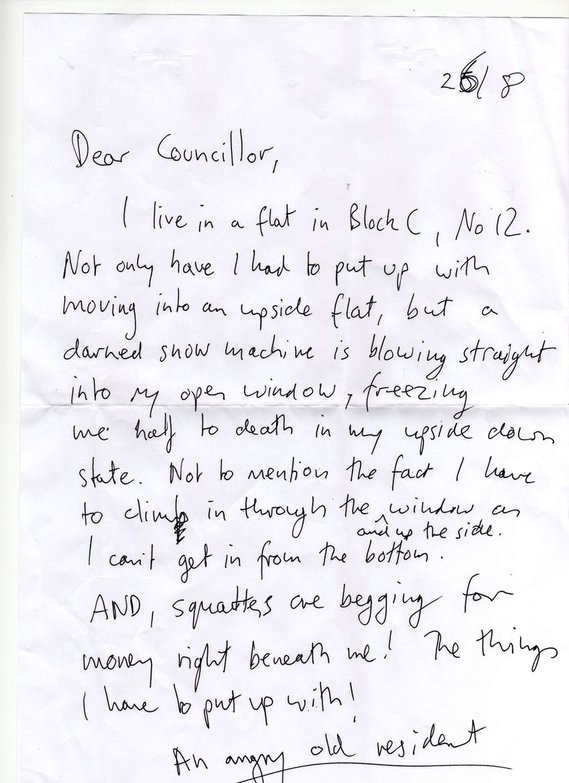 26/8
Dear Councillor,
I live in a flat in Block C, No 12.
Not only have I had to put up with
moving into an upside flat, but a
darned snow machine is blowing straight
into my open window, freezing
me half to death in my upside down
state. Not to mention the fact I have
to climb in through the window as
and up the side.
I can't get in from the bottom.
AND, squatters are begging for
money right beneath me! The things
I have to put up with!
An angry old resident